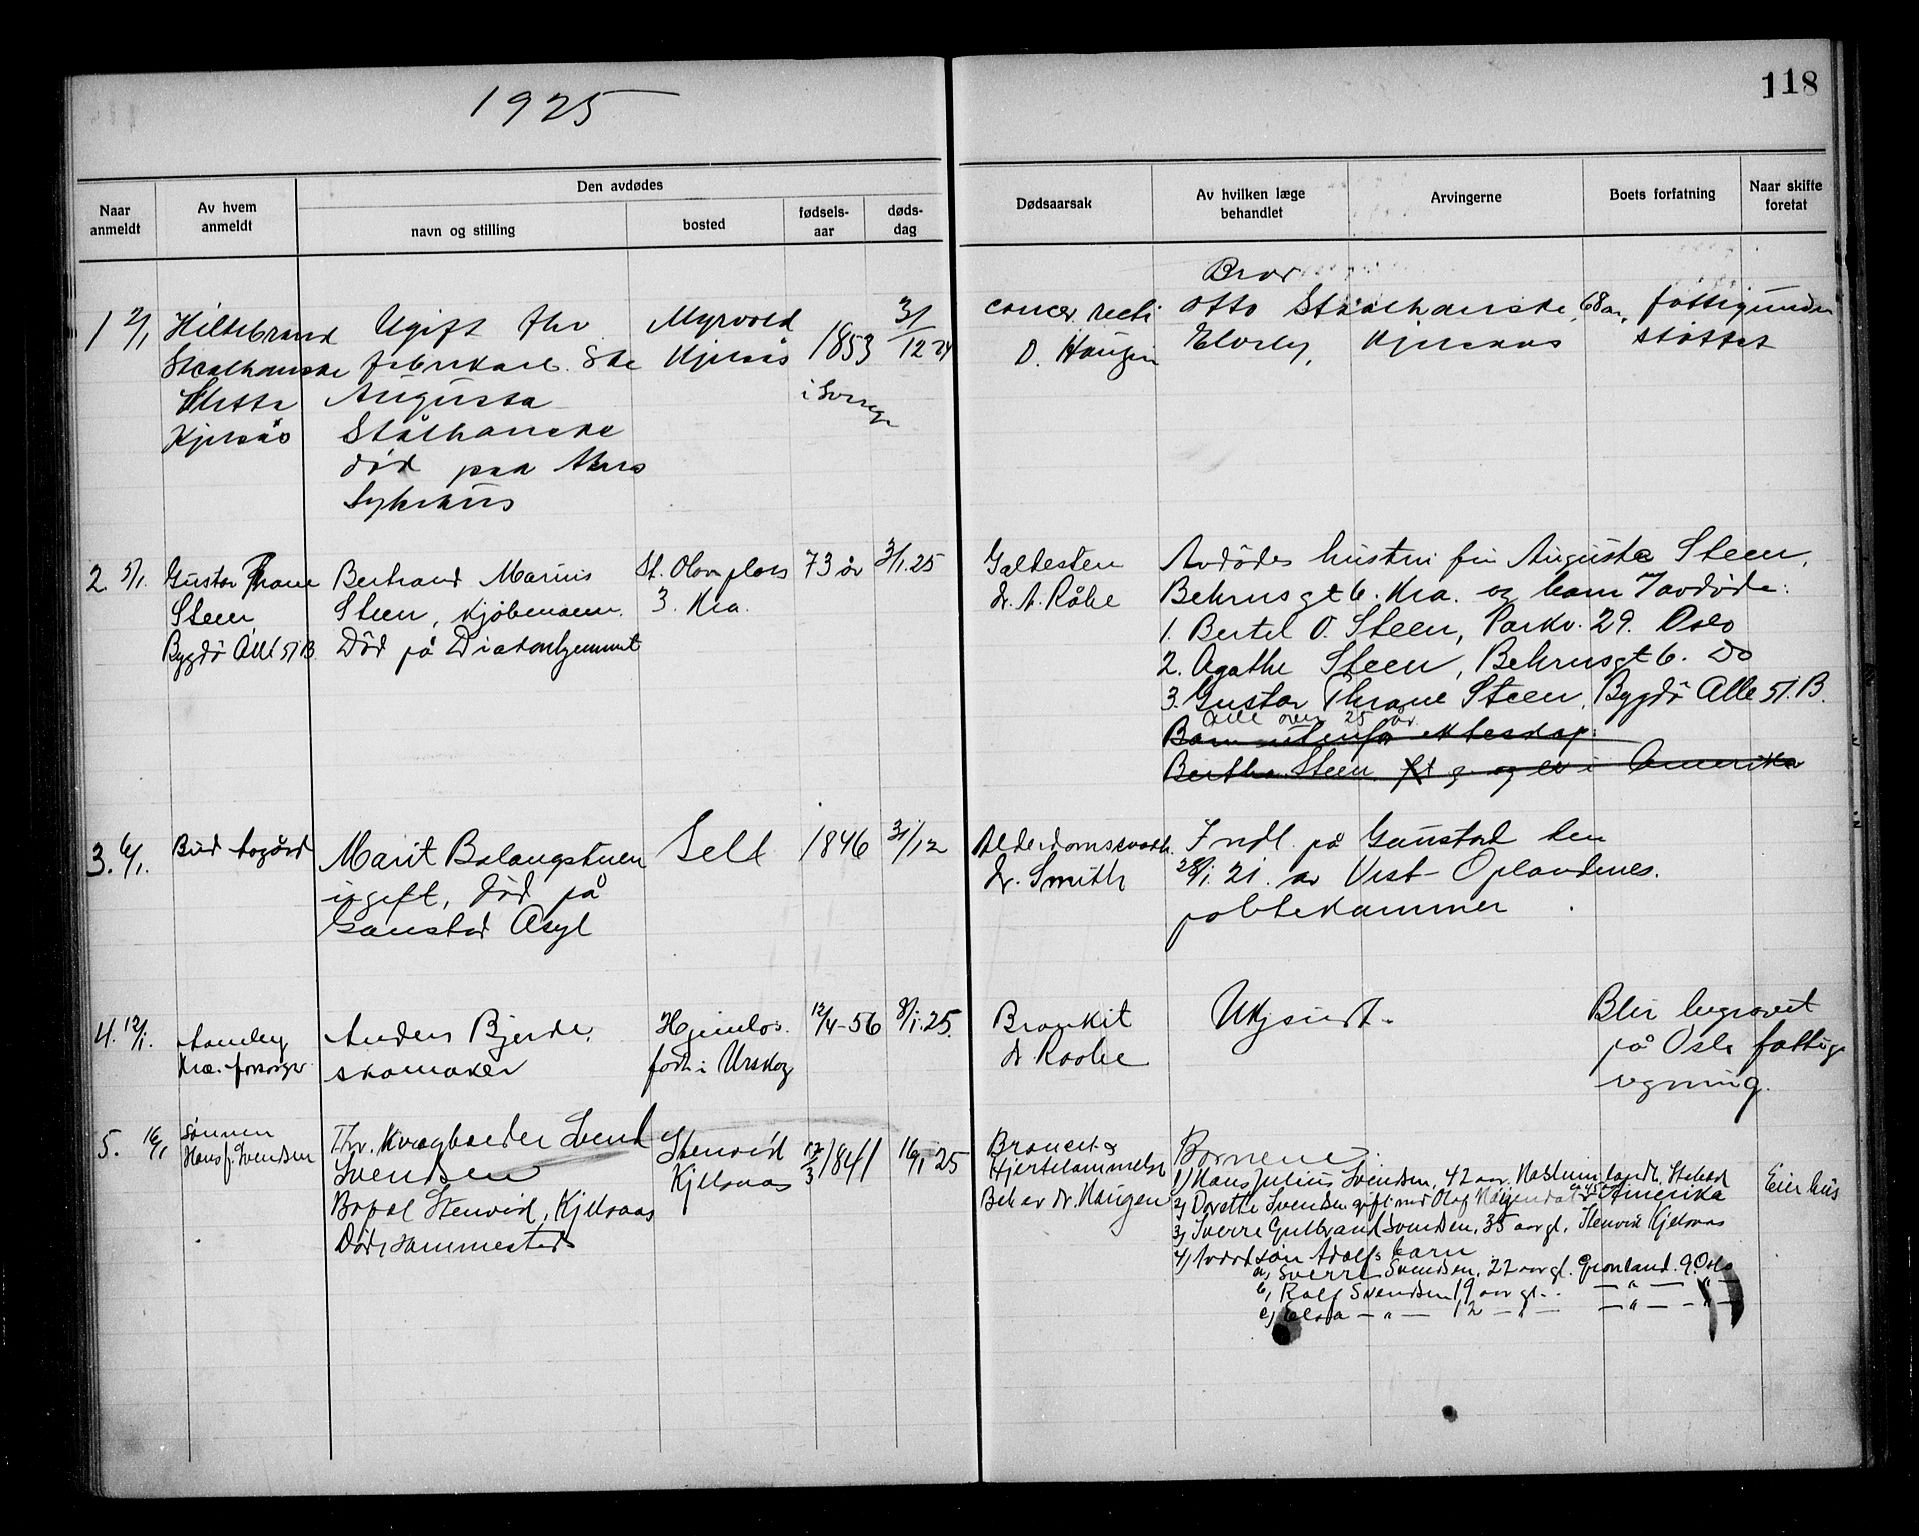 1925
118
Naar anmeldt
Av hvem anmeldt
Den avdødes
navn og stilling
bosted
fødsels-aar
døds-dag
Dødsaarsak
Av hvilken læge behandlet
Arvingerne
Boets forfatning
Naar skifte foretat
1 2/1
Hildebrand
Staalhanske
Kjelsås
Ugift fhv
fabrikarb.
Augusta
Stålhanske
død paa Akers
Sykehus
Myrvold
Kjelsås
1853
i Sverige
31/12 24
cancer recti
D. Haugen
Bror
Otto Stålhanske, 68 aar,
Elvely, Kjelsaas
fattigunder
støttet
2. 5/1.
Gustav Thrane
Steen
Bygdø Allé 51 B.
Bertrand Marius
Steen, Kjøbmann.
Død på Diakonhjemmet
St. Olavs plass
3. Kra.
73 år
3/1.25
Galdesten
dr. A. Råbe
Avdødes hustru fru Augusta Steen,
Behrnsgt 6. Kra. og barn 7 avdøde:
1. Bertel O. Steen, Parkv. 29. Oslo
2. Agathe Steen, Behrnsgt 6. Do
3. Gustav Thrane Steen, Bygdø Alle 51. B.
Alle over 25 år.
Barn utenfor ekteskap:
Bertha Steen g. og bor i Amerika
3. 6/1.
Marit Bolangstuen
ugift, død på
Gaustad Asyl
Sell
1846
31/12
Alderdomssvakh.
dr. Smith
Indl. på Gaustad den
28/1. 21. av Vest-Oplandenes.
politikammer
4. 12/1.
Kra. forsorger
Anders Bjerde.
skomaker
Hjemløs.
født i Urskog
12/4-56
8/1.25.
Bronkit
dr. Raabe
Ukjendt.
Blir begravet
på Oslo fattig
regning.
5. 16/1
Sønnen
Hans J. Svendsen
Fhv. Kvæghandler Svend
Svendsen
Bopæl Stenvid, Kjelsaas
Død sammesteds
Stenvid
Kjelsaas
12/3 1841
16/1 25
Broncit &
Hjertelammelse
Beh av dr. Haugen
Børnene:
1) Hans Julius Svendsen, 42 aar, Stabæk
2) Dorette Svendsen gift med Olaf Amerika
3) Sverre Gulbrand Svendsen, 35 aar gl, Stenvid Kjelsaas
4) avdød søn Adolfs barn
a) Sverre Svendsen, 22 aar gl. Grønland. 9. Oslo
b) Rolf Svendsen 19 aar gl. — " — " —
c) Elsa — " — 12 — " — — " — " —
Eier hus